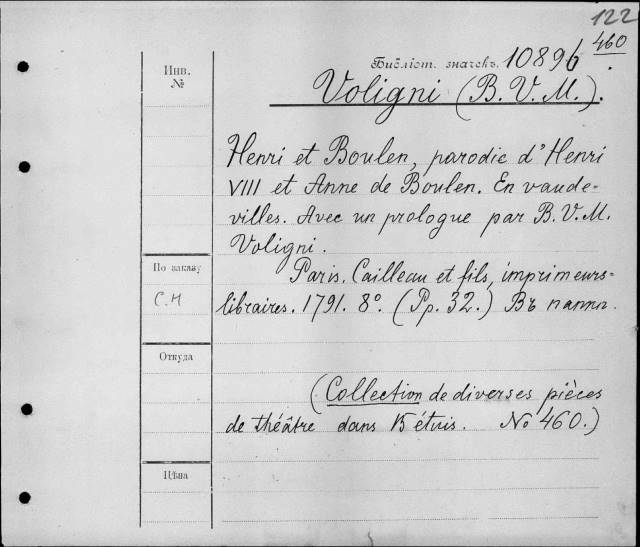 122
Библіот. значекъ. 10896 460.
Инв.
№
Voligni (B. V. M.).
Henri et Boulen, parodie d'Henri
VIII et Anne de Boulen. En vaude-
villes. Avec un prologue par B. V. M.
Voligni.
По заказу
С. Н
Paris. Cailleau et fils, imprimeurs-
libraires. 1791. 8º. (Pp. 32.) Въ папкѣ.
Откуда
(Collection de diverses pièces
de théâtre dans 15 étuis. No 460.)
Цѣна